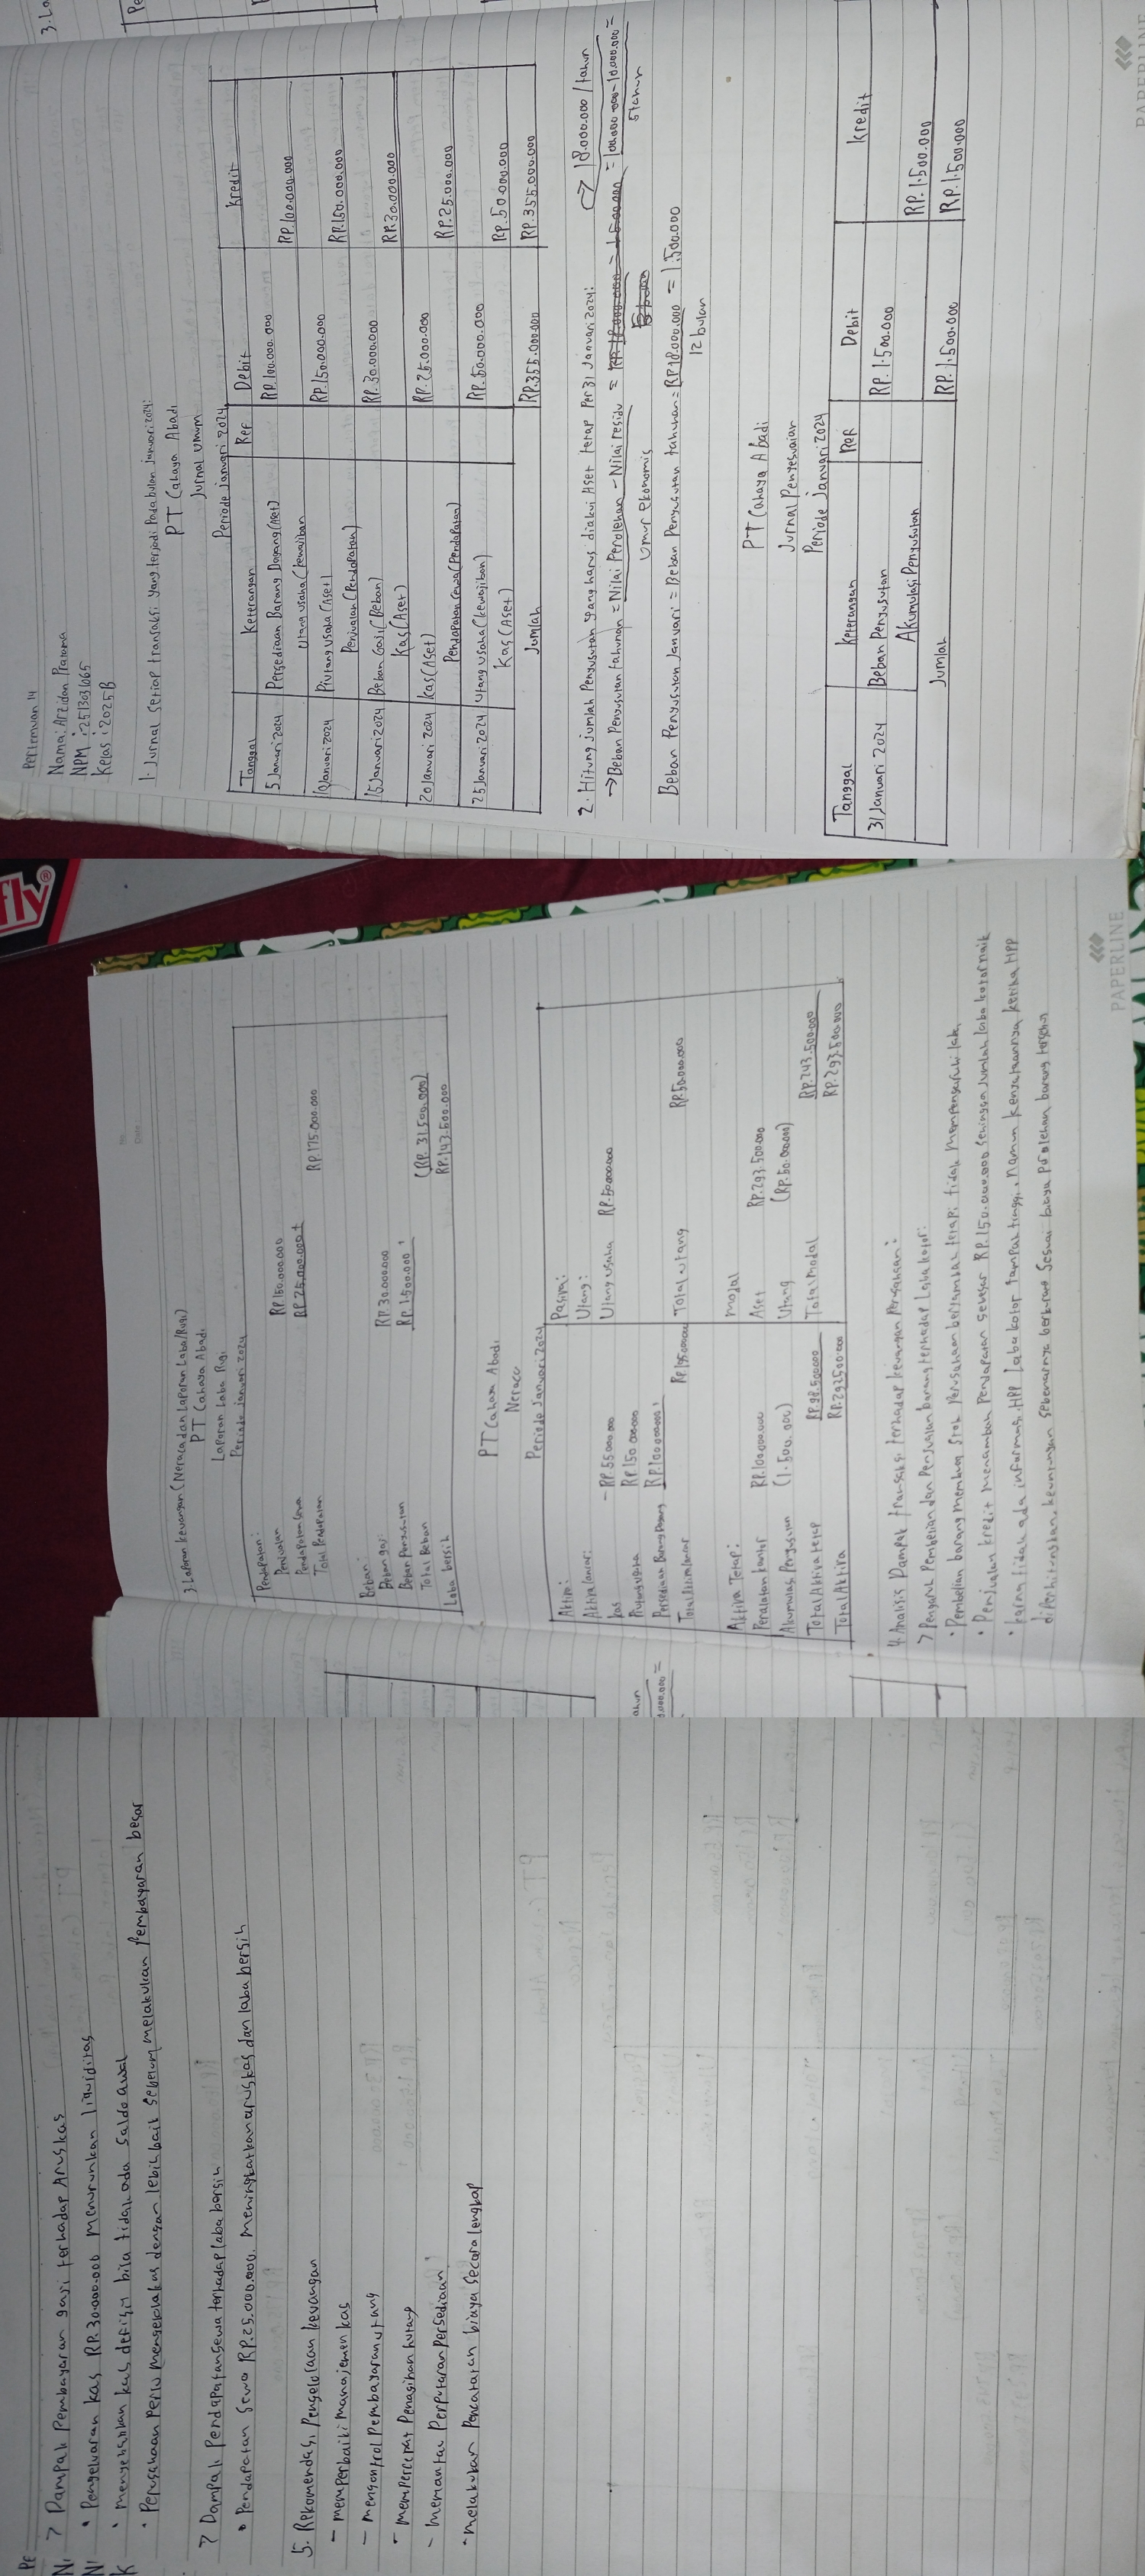 Pertemuan 14
Nama: Arzidan Pratama
NPM : 2513031065
Kelas : 2025 B
1. Jurnal setiap transaksi yang terjadi Pada bulan Januari 2024:
PT Cahaya Abadi
Jurnal Umum
Periode Januari 2024
Tanggal Keterangan Ref Debit Kredit
5 Januari 2024 Persediaan Barang Dagang (Aset) RP.100.000.000
Utang usaha (kewajiban RP.100.000.000
10 Januari 2024 Piutang usaha (Aset) RP.150.000.000
Penjualan (Pendapatan) RP.150.000.000
15 Januari 2024 Beban Gaji (Beban) RP.30.000.000
Kas (Aset) RP.30.000.000
20 Januari 2024 Kas (Aset) RP.25.000.000
Pendapatan Sewa (Pendapatan) RP.25.000.000
25 Januari 2024 Utang usaha (kewajiban) RP.50.000.000
Kas (Aset) RP.50.000.000
Jumlah RP.355.000.000 RP.355.000.000
2. Hitung jumlah Penyusutan yang harus diakui Aset tetap Per 31 Januari 2024:
→ Beban Penyusutan tahunan = Nilai Perolehan - Nilai residu = 100.000.000 - 10.000.000 = 18.000.000 / tahun
Umur Ekonomis 5 tahun
Beban Penyusutan Januari = Beban Penyusutan tahunan = RP.18.000.000 = 1.500.000
12 bulan
PT Cahaya Abadi
Jurnal Penyesuaian
Periode Januari 2024
Tanggal Keterangan Ref Debit Kredit
31 Januari 2024 Beban Penyusutan RP. 1.500.000
Akumulasi Penyusutan RP. 1.500.000
Jumlah RP. 1.500.000 RP. 1.500.000
PAPERLINE
fly
No.
Date
3. Laporan keuangan (Neraca dan Laporan Laba/Rugi)
PT Cahaya Abadi
Laporan Laba Rugi
Periode Januari 2024
Pendapatan:
Penjualan RP.150.000.000
Pendapatan Sewa RP.25.000.000 +
Total Pendapatan RP.175.000.000
Beban:
Beban gaji RP.30.000.000
Beban Penyusutan RP.1.500.000
Total Beban (RP. 31.500.000)
Laba bersih RP.143.500.000
PT Cahaya Abadi
Neraca
Periode Januari 2024
Aktiva: Pasiva:
Aktiva lancar: Utang:
Kas - RP.55.000.000 Utang usaha RP.50.000.000
Piutang usaha RP.150.000.000
Persediaan Barang Dagang RP.100.000.000
Total Aktiva lancar RP.195.000.000 Total utang RP.50.000.000
Aktiva Tetap: Modal
Peralatan kantor RP.100.000.000 Aset RP.293.500.000
Akumulasi Penyusutan (1.500.000) Utang (RP.50.000.000)
Total Aktiva tetap RP.98.500.000 Total modal RP.243.500.000
Total Aktiva RP.293.500.000 RP.293.500.000
4. Analisis Dampak transaksi terhadap keuangan Perusahaan:
> Pengaruh Pembelian dan Penjualan barang terhadap Laba kotor:
• Pembelian barang membuat Stok Perusahaan bertambah tetapi tidak mempengaruhi laba
• Penjualan kredit menambah Pendapatan sebesar RP.150.000.000 sehingga jumlah laba kotor naik
• karna tidak ada informasi HPP laba kotor tampak tinggi, namun kenyataannya ketika HPP
diperhitungkan, keuntungan sebenarnya berkurang sesuai biaya perolehan barang tersebut
PAPERLINE
> Dampak Pembayaran gaji terhadap Arus kas
• Pengeluaran kas RP.30.000.000 menurunkan likuiditas
• menyebabkan kas defisit bila tidak ada saldo awal
• Perusahaan Perlu mengelola kas dengan lebih baik sebelum melakukan Pembayaran besar
> Dampak Pendapatan sewa terhadap laba bersih
• Pendapatan Sewa RP.25.000.000. Meningkatkan arus kas dan laba bersih
5. Rekomendasi Pengelolaan keuangan
- memperbaiki manajemen kas
- mengontrol Pembayaran utang
- mempercepat Penagihan hutang
- memantau Perputaran Persediaan
• melakukan Pencatatan biaya secara lengkap